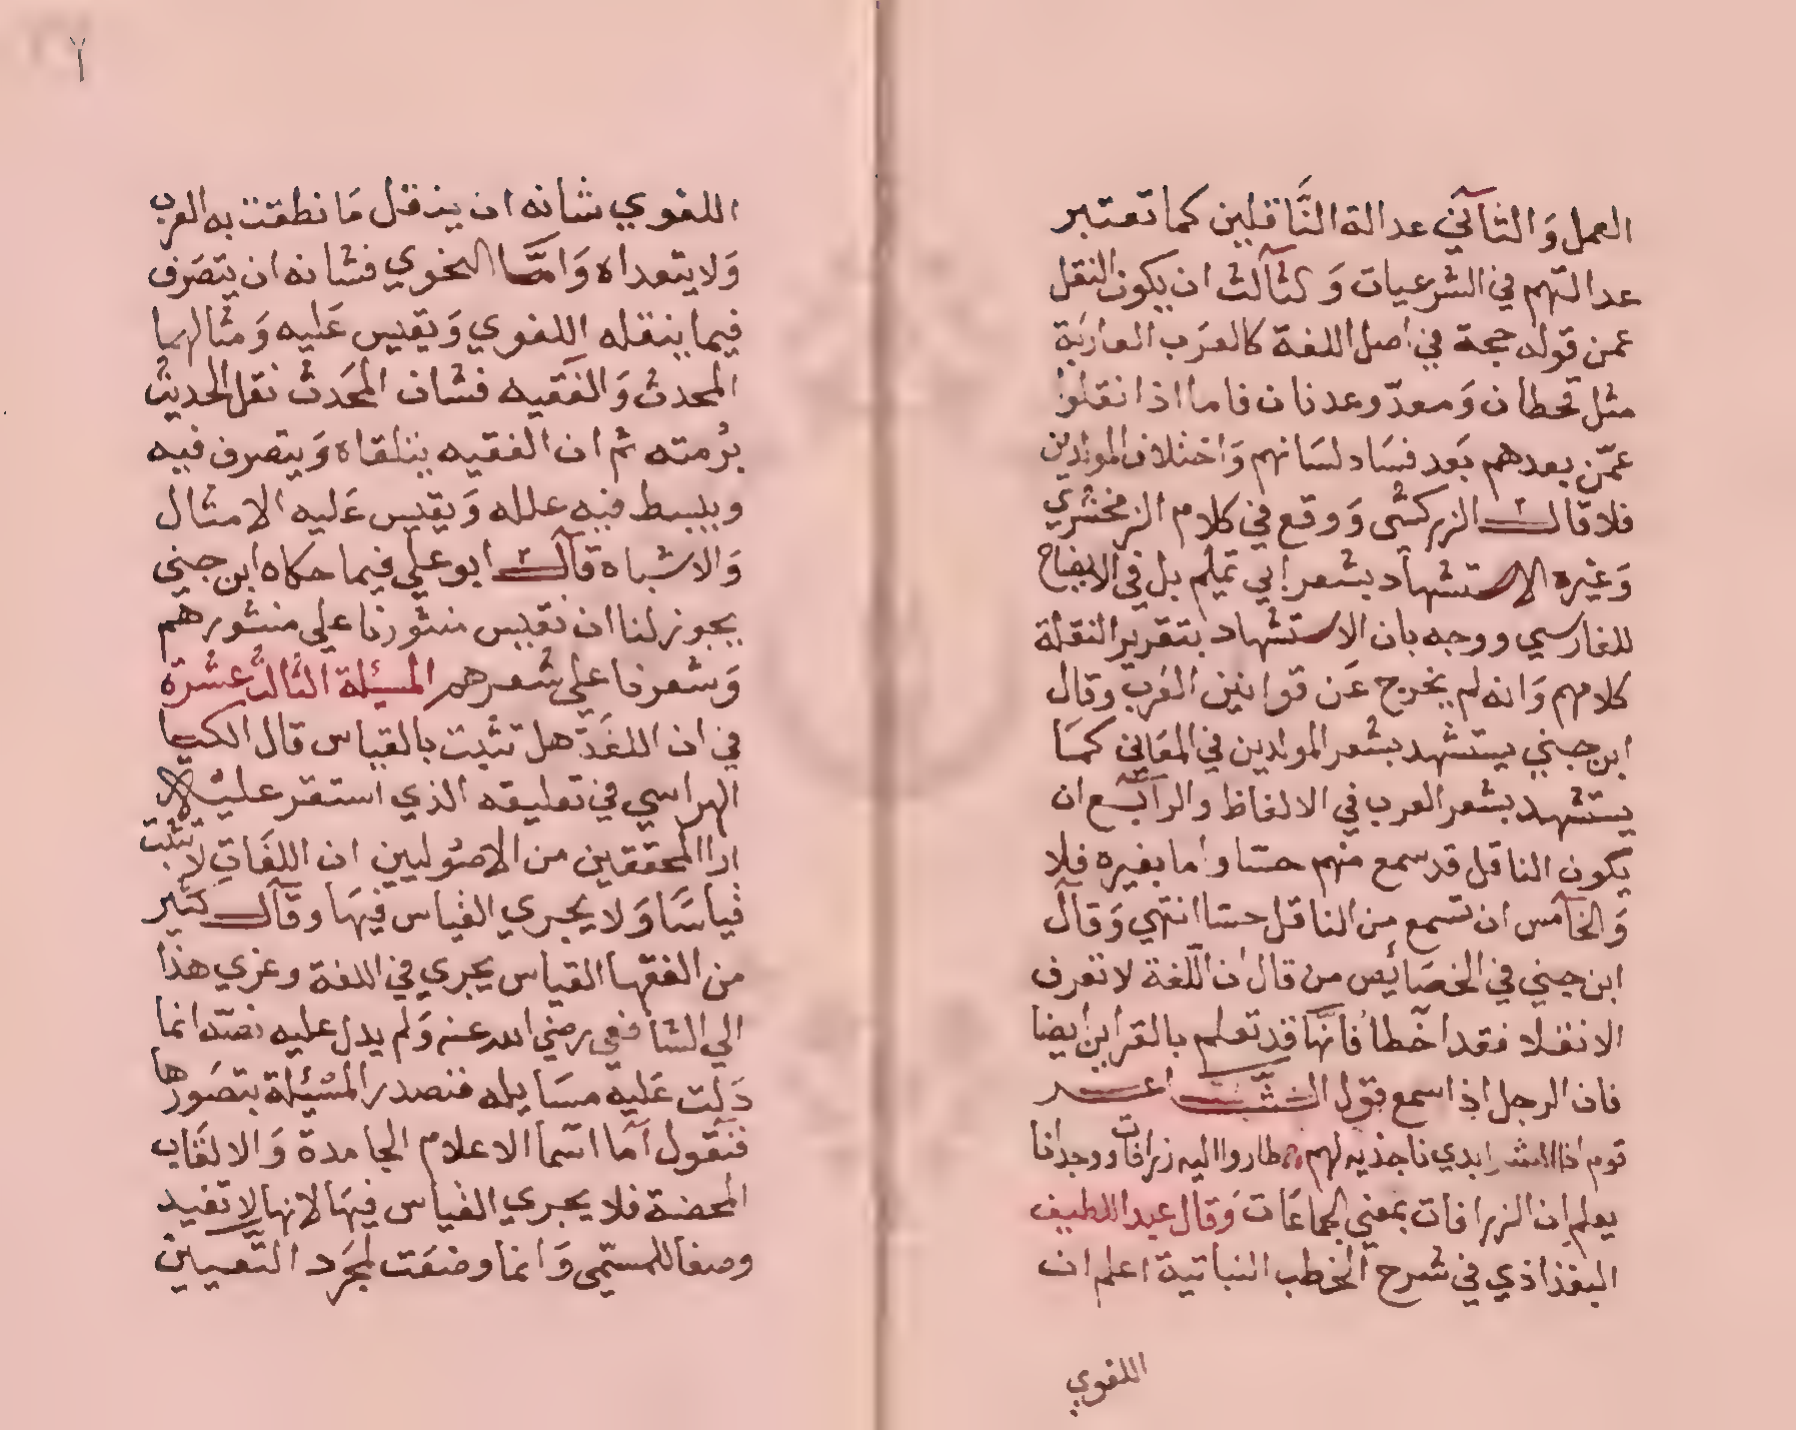 العمل وَالثاني عدالة النَّاقلين كما تعتبر
عدالتهم في الشرعيات وَالثالث ان يكون النقل
عمن قوله حجة في اصل اللغة كالعرَب العاربَة
مثل قحطان وَمعدّ وعدنان فاما اذا نقلوا
عمّن بعدهم بَعد فسَاد لسَانهم وَاختلاف المولدين
فلا قال الزركشى وَوقع في كلام الزمخشري
وَغيره الاستشهاد بشعر ابي تميلم بل في الايضاح
للفارسي ووجه بان الاستشهاد بتقرير النقلة
كلامهم وَانه لم يخرج عَن قوانين العَرب وقال
ابن جني يستشهد بشعر المولدين في المعَاني كمَا
يستشهد بشعر العرب في الالفاظ والرابع ان
يكون الناقل قد سمع منهم حسّا واما بغيره فلا
وَالخامس ان تسمع من الناقل حسّا انتهي وَقال
ابن جني في الخصَائص من قال ان اللّغة لا تعرف
الا نقلا فقد اخطا فانّها قد تعلم بالقراين ايضا
فان الرجل اذا سمع قول الشاعر
قوم اذا الشر ابدي ناجذيه لهم طاروا اليه زرافات ووحدانا
يعلم ان الزرافات بمعني الجماعَات وَقال عبد اللطيف
البغذاذي في شرح الخطب النباتية اعلم ان
اللغوي
٧
اللغوي شانه ان ينقل مَا نطقت به العرب
وَلا يتعداه وَامَّا النحوي فشانه ان يتصَرف
فيما ينقله اللغوي وَيقيس عَليه وَمثالهما
المحدث وَالفَقيه فشان المحَدث نقل الحديث
برُمته ثم ان الفقيه يتلقاه وَيتصرف فيه
ويبسط فيه علله وَيقيس عَليه الامثال
وَالاشباه قال ابو علي فيما حكاه ابن جني
يجوز لنا ان نقيس منثورنا علي منثورهم
وَشعرنا علي شعرهم المسئلة الثالث عشرة
في ان اللغَة هل تثبت بالقياس قال الكيا
الهراسي في تعليقه الذي استقر عليه
ارا المحققين من الاصُوليين ان اللغَات لا تثبت
قياسَا وَلا يجري القياس فيهَا وقال كثير
من الفقها القياس يجري في اللغة وعزي هذا
الي الشافعي رضي الله عنه وَلم يدل عليه نصّه انما
دَلت عَليه مسَايله فنصدر المسئلة بتصَورها
فنقول اَما اسما الاعلام الجامدة وَالالقَاب
المحضة فلا يجري القياس فيهَا لانها لا تفيد
وصفا للمسمّى وَانما وضعَت لمجَرد التَّعيين